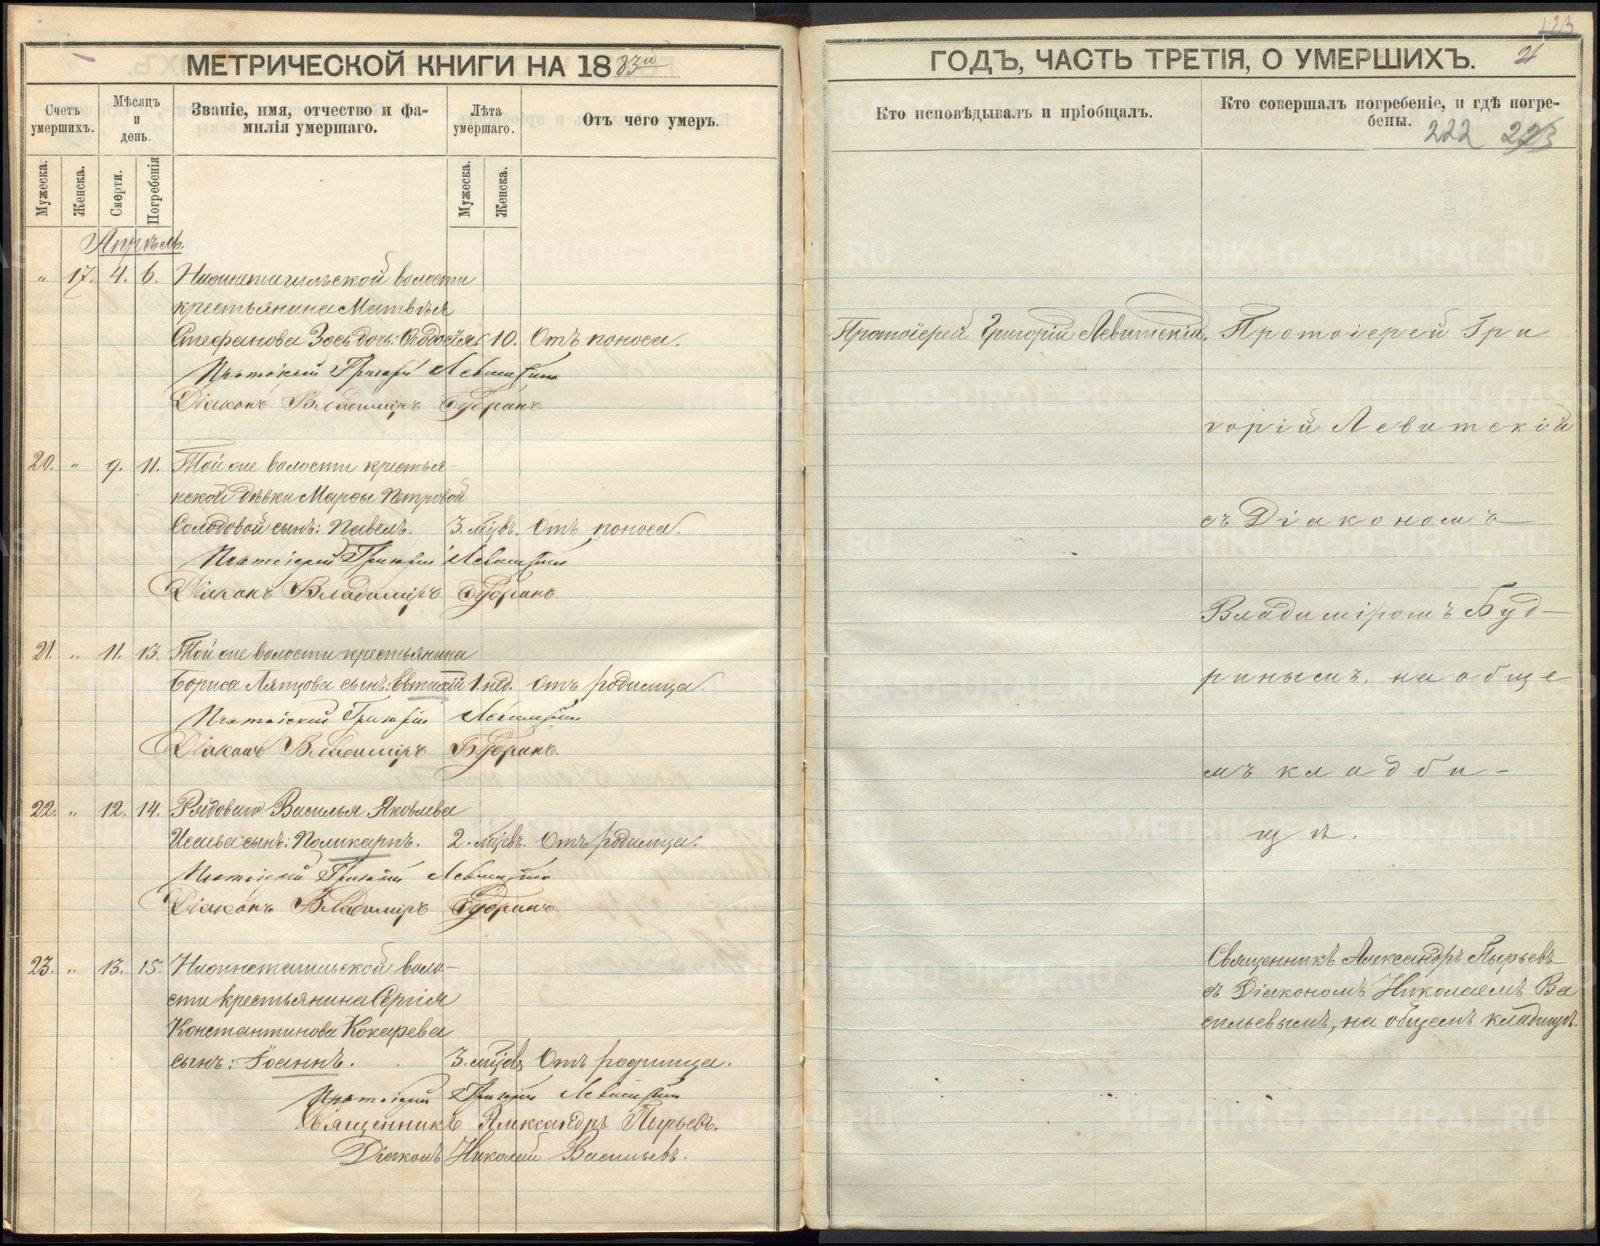 МЕТРИЧЕСКОЙ КНИГИ НА 1883й
Счетъ умершихъ.
Мѣсяцъ и день.
Званіе, имя, отчество и фамилія умершаго.
Лѣта умершаго.
Отъ чего умеръ.
Мужеска.
Женска.
Смерти.
Погребенія
Мужеска.
Женска.
Апрѣль.
" 17. 4. 6. Нижнетагильской волости
крестьянина Матвѣя
Стефанова дочь: Ѳеодосія 10. Отъ поноса.
Протоіерей Григорій Левитскій
Діаконъ Владиміръ Будринъ
20. " 9. 11. Той же волости крестья-
нской дѣвки Марѳы Петровой
Солодовой сынъ: Павелъ. 3. мѣцевъ. Отъ поноса.
Протоіерей Григорій Левитскій
Діаконъ Владиміръ Будринъ
21. " 11. 13. Той же волости крестьянина
Бориса Ляпцова сынъ: Евтихій 1. нед. Отъ родимца.
Протоіерей Григорій Левитскій
Діаконъ Владиміръ Будринъ.
22. " 12. 14. Рядоваго Василья Яковлева
Исаева сынъ: Поликарпъ. 2. мѣцевъ. Отъ родимца.
Протоіерей Григорій Левитскій
Діаконъ Владиміръ Будринъ
23. " 13. 15. Нижнетагильской воло-
сти крестьянина Сергія
Константинова Кокарева
сынъ: Іоаннъ. 3. мѣцев. Отъ родимца.
Протоіерей Григорій Левитскій
Священникъ Александръ Пырьевъ.
Діаконъ Николай Васильевъ.
123
ГОДЪ, ЧАСТЬ ТРЕТІЯ, О УМЕРШИХЪ.
21
Кто исповѣдывалъ и пріобщалъ.
Кто совершалъ погребеніе, и гдѣ погре-
бены.
222 223
Протоіерей Григорій Левитскій. Протоіерей Гри
горій Левитскій
съ Діакономъ
Владиміромъ Буд-
ринымъ, на обще
мъ кладби-
щѣ.
Священникъ Александръ Пырьевъ
съ Діакономъ Николаемъ Ва
сильевымъ, на общемъ кладбищѣ.
METRIKI.GASO-URAL.RU